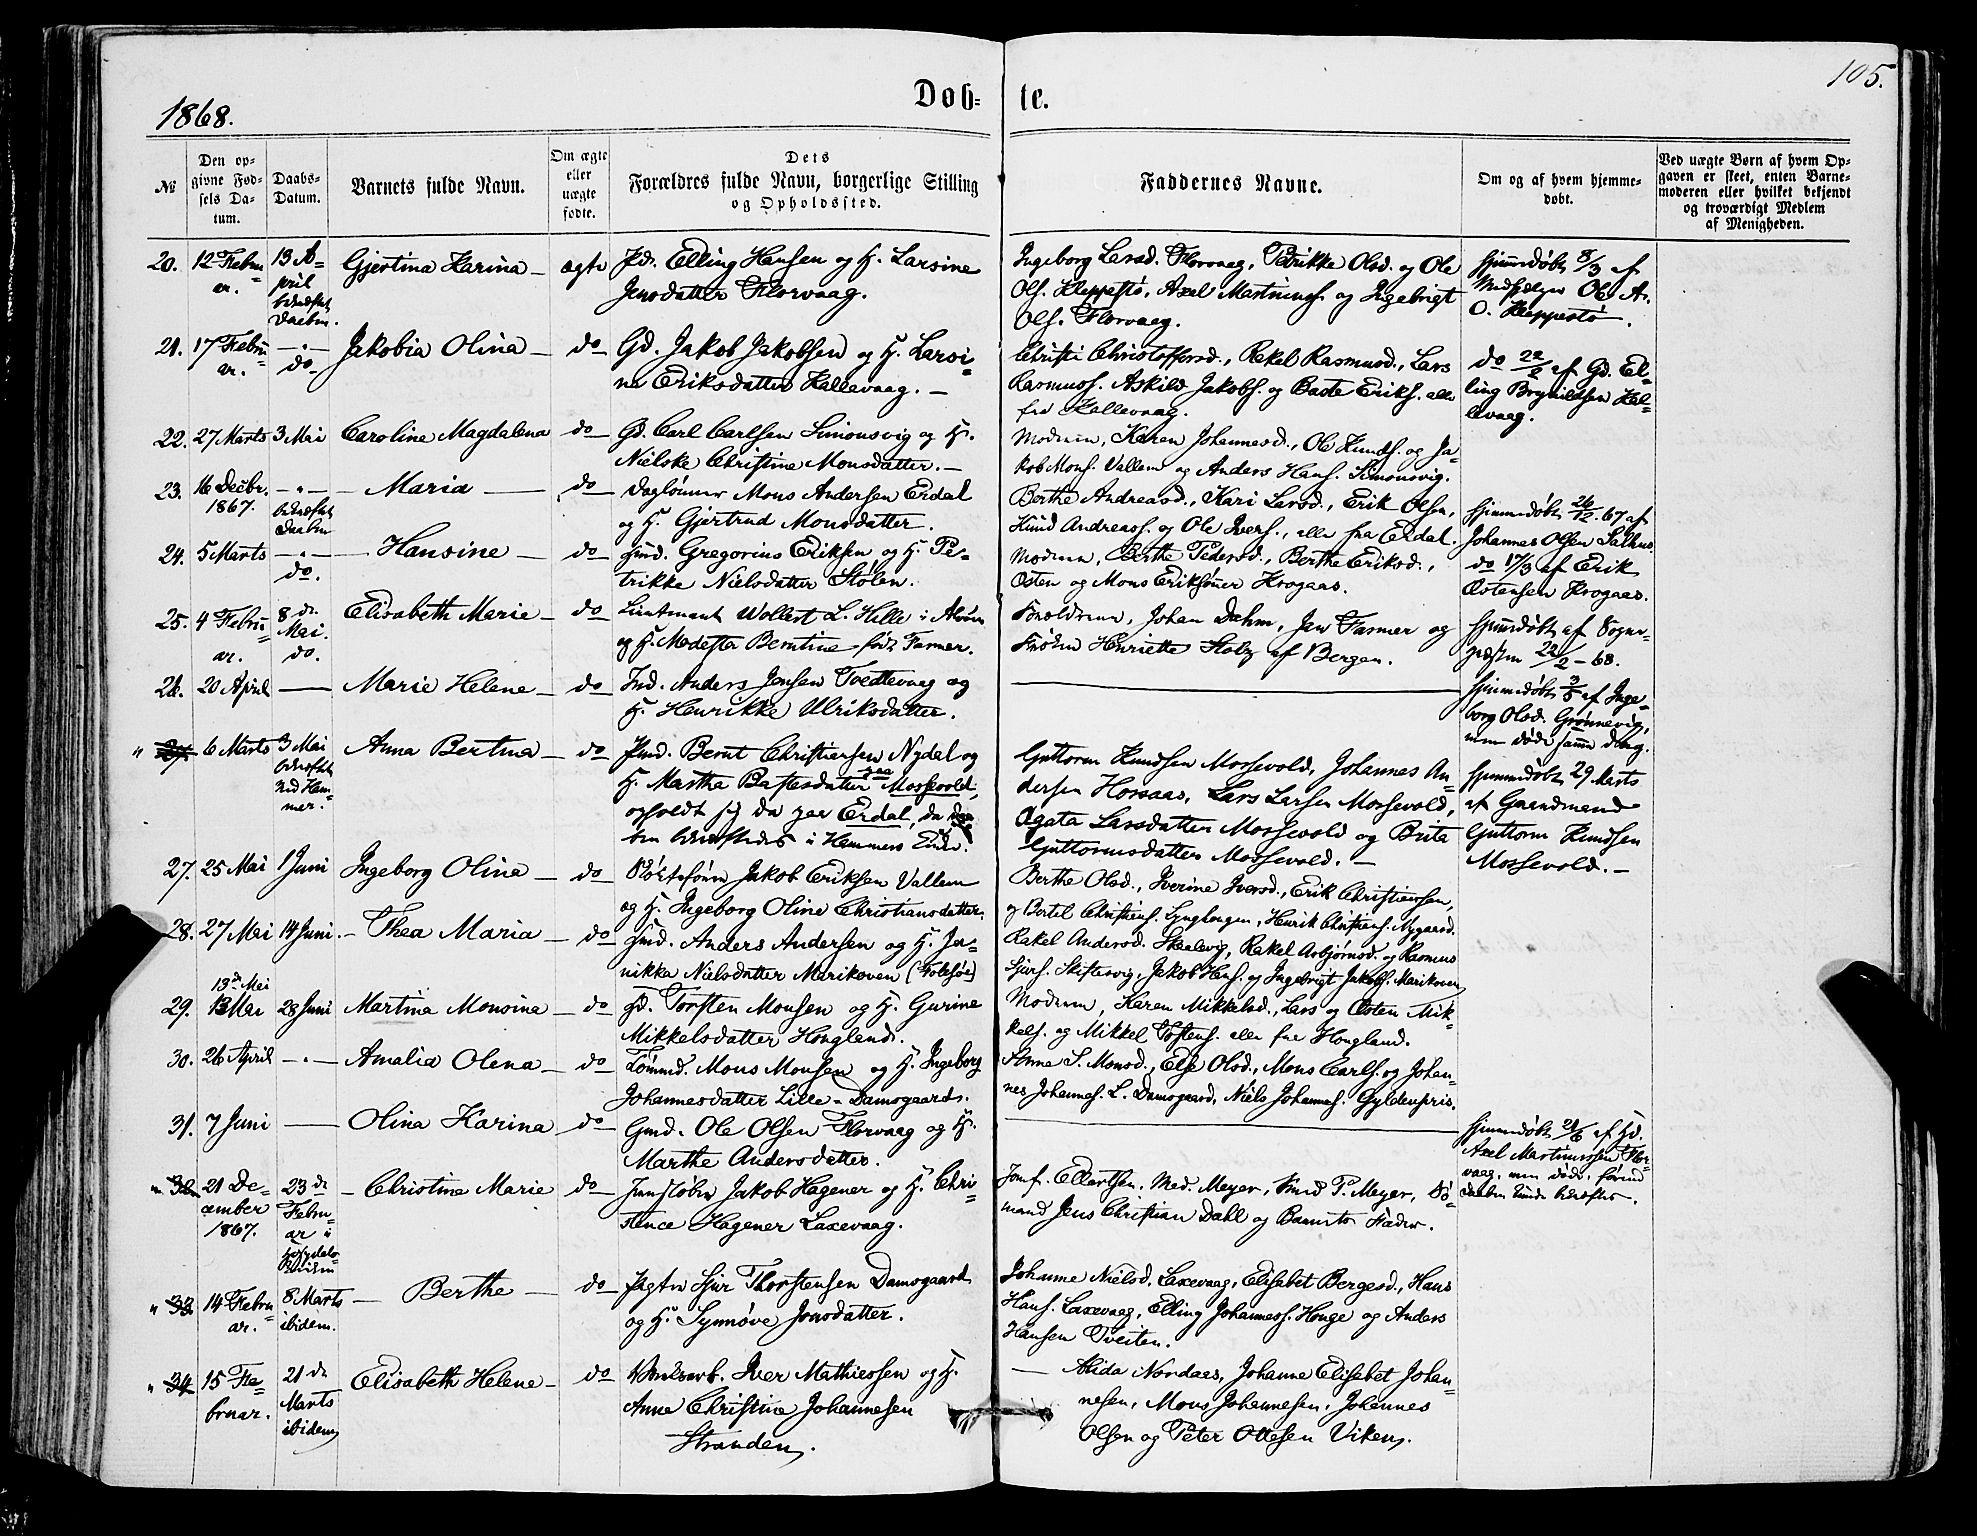 105.
Døb- te.
1868.
№
Den op-
givne Fød-
sels Da-
tum.
Daabs-
Datum.
Barnets fulde Navn.
Om ægte
eller
uægte
fødte.
Dets
Forældres fulde Navn, borgerlige Stilling
og Opholdssted.
Faddernes Navne.
Om og af hvem hjemme-
døbt.
Ved uægte Børn af hvem Op-
gaven er skeet, enten Barne-
moderen eller hvilket bekjendt
og troværdigt Medlem
af Menigheden.
20. 12 Febru- ar. 13 A- pril bekræftet Daaben. Gjertina Karina ægte
Elling Hansen og H. Larsine
Jensdatter Florvaag.
Ingeborg Larsd. Florvaag, Petrikke Olsd. og Ole
Ols. Kleppestø, Axel Martinuss. og Ingebrigt
Ols. Florvaag.
Hjemmedøbt 8/3 af
Ole A.
O. Kleppestø.
21. 17 Febru- ar. do. Jakobia Olina do
Gd. Jakob Jakobsen og H. Larsi-
ne Eriksdatter Hallevaag.
Christi Christoffersd., Rakel Rasmusd., Lars
Rasmuss. Askild Jakobs. og Baste Eriks. alle
fra Hallevaag.
do 22/2 af Gd. El-
ling Brynildsen Hal-
levaag.
22. 27 Marts 3 Mai Caroline Magdalena do
Gd. Carl Carlsen Simonsvig og H.
Nielske Christine Monsdatter.
Moderen, Karen Johannesd., Ole Knuds. og Ja-
kob Mons. Vallem og Anders Hans. Simonsvig.
23. 16 Decbr. 1867. bekræftet Daaben Maria do
Daglønner Mons Andersen Erdal
og H. Gjertrud Monsdatter.
Berthe Andreasd., Kari Larsd., Erik Olsen,
Knud Andreass. og Ole Ivers., alle fra Erdal.
Hjemmedøbt 26/12. 67 af
Johannes Olsen Salhus.
24. 5 Marts do. Hansine do
Gregorius Eriksen og H. Pe-
trikke Nielsdatter Stølen.
Moderen, Berthe Pedersd., Berthe Eriksd.,
Østen og Mons Eriksønner Krogaas.
do 17/3 af Erik
Østensen Krogaas.
25. 4 Febru- ar. 8 de Mai. do. Elisabeth Marie do
Lieutenant Wollert L. Hille i Alvøen
og H. Modesta Berntine født Fasmer.
Forældrene, Johan Dahm, Jan Fasmer og
Frøken Henriette Stolz af Bergen.
Hjemmedøbt af Sogne-
præsten 22/2 - 68.
26. 20 April Marie Helene do
Ind. Anders Jensen Tvedtevaag og
H. Henrikke Ulriksdatter.
Hjemmedøbt 3/5 af Inge-
borg Olsd. Grønnevig,
men døde samme dag.
" 6 Marts 3 Mai bekræftet ved Ham- mer. Anna Bertina do
Bernt Christiansen Nydal og
H. Martha Bastesdatter Mossevold,
opholdt sig da paa Erdal, da
Daaben bekræftedes i Hammers Kirke.
Guttorm Knudsen Mossevold, Johannes An-
dersen Horsaas, Lars Larsen Mossevold,
Agata Larsdatter Mossevold og Brita
Guttormsdatter Mossevold.
Hjemmedøbt 29 Marts
af Gaardmand
Guttorm Knudsen
Mossevold.
27. 25 Mai 1 Juni Ingeborg Olina do
Jakob Eriksen Vallem
og H. Ingeborg Oline Christiansdatter.
Berthe Olsd., Iverine Iversd., Erik Christiansen,
og Bertel Christians. Lynghaugen, Henrik Christians. Nygaard.
28. 27 Mai 14 Juni. Thea Maria do
Anders Andersen og H. Jan-
nikka Nielsdatter Marikoven
Rakel Andersd. Skaalevig, Rakel Asbjørnsd. og Rasmus
Sjurs. Skiftesvig, Jakob Hans. og Ingebrigt Jakobs. Marikoven
13de Mai
29. 13 Mai 28 Juni Martina Monsina do
Gd. Torsten Monsen og H. Gurine
Mikkelsdatter Hougland.
Moderen, Karen Mikkelsd., Lars og Østen Mik-
kels. og Mikkel Tostens. alle fra Hougland.
30. 26 April Amalia Olena do
Tømmd. Mons Monsen og H. Ingeborg
Johannesdatter Lille-Damsgaard.
Anne S. Monsd., Else Olsd., Mons Carls. og Johan-
nes Johanness. L. Damsgaard, Niels Johanness. Gyldenpris.
31. 7 Juni Olina Karina do
Gmd. Ole Olsen Florvaag og H.
Marthe Andersdatter.
Hjemmedøbt 21/6 af Gd.
Axel Martinussen Flor-
vaag, men døde, førend
Daaben kunde bekræftes.
32. 21 De- cember 1867. 23 de Febru- ar i Christine Marie do
Jakob Hagener og H. Chri-
stence Hagener Laxevaag.
Jomf. Ellertsen, Mad. Meyer, Knud P. Meyer, Sø-
mand Jens Christian Dahl og Barnets Fader.
" 33 14 Febru- ar. 8 Marts ibidem. Berthe do
Sjur Thorstensen Damsgaard
og H. Synnøve Jonsdatter.
Johanne Nielsd. Laxevaag, Elisabet Bergesd., Hans
Hans. Laxevaag, Elling Johanness. Houge og Anders
Hansen Tveiten.
" 34 15 Fe- bruar. 21 de Marts ibidem Elisabeth Helene do
Iver Mathiessen og H.
Anne Christine Johannesen
Stranden.
Alida Nordaas, Johanne Elisabet Johan-
nesen, Mons Johannesen, Johannes
Olsen og Peter Ottesen Viken.